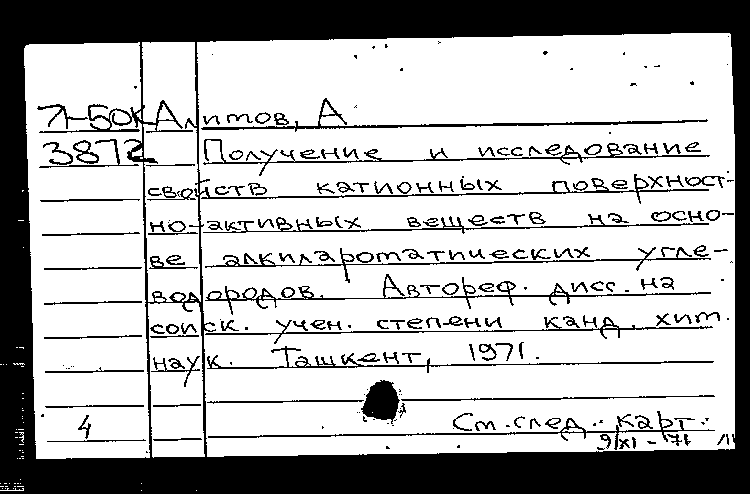 71-50К Алимов, А
3872 Получение и исследование
свойств катионных поверхност-
но-активных веществ на осно-
ве алкилароматических угле-
водородов. Автореф. дисс. на
соиск. учен. степени канд. хим.
наук. Ташкент, 1971.
4 См. след. карт.
9/XI - 71